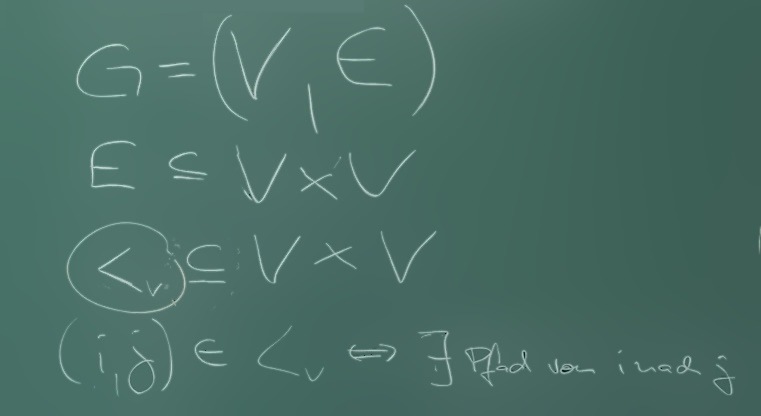 G = (V, E)
E ⊆ V × V
<_v ⊆ V × V
(i, j) ∈ <_v ⇔ ∃ Pfad von i nach j